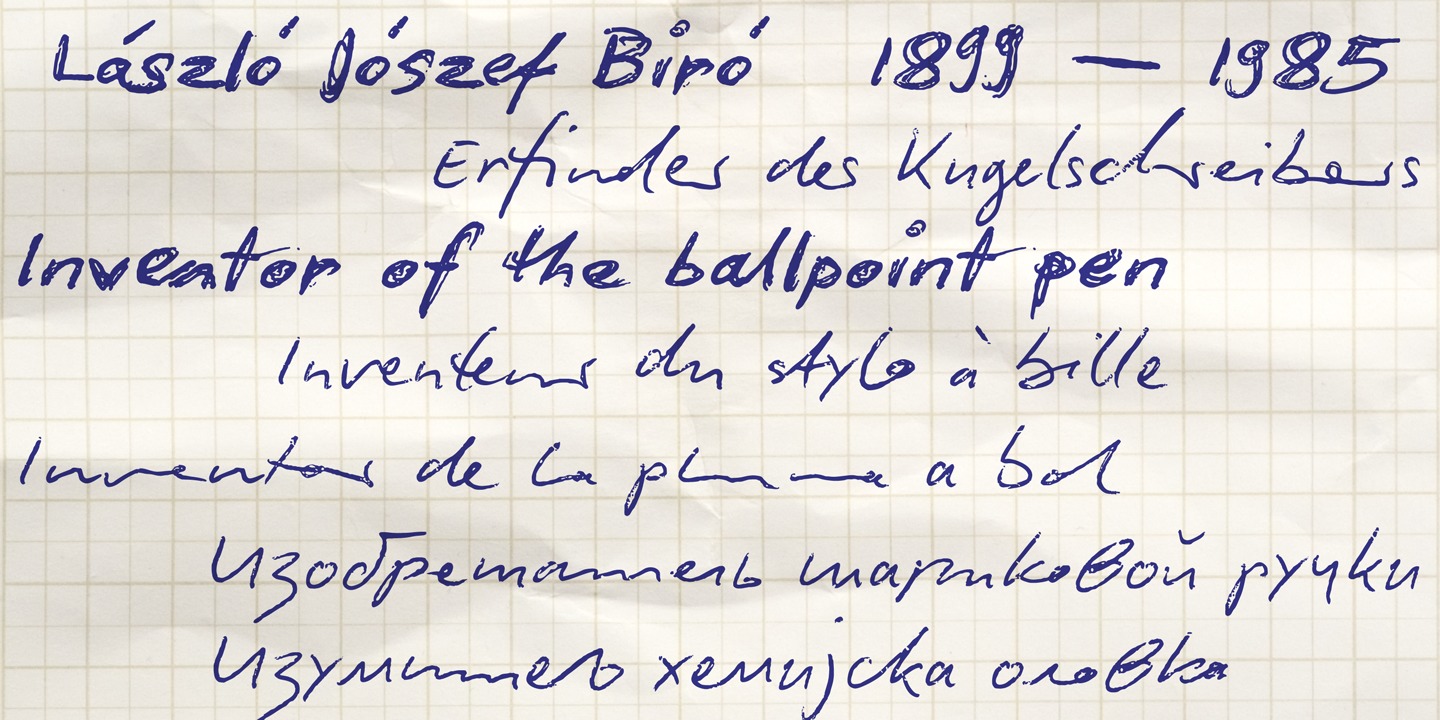 László József Bíró 1899 — 1985
Erfinder des Kugelschreibers
Inventor of the ballpoint pen
Inventeur du stylo à bille
Inventor de la pluma a bol
Изобретатель шариковой ручки
Изумитељ хемијска оловка